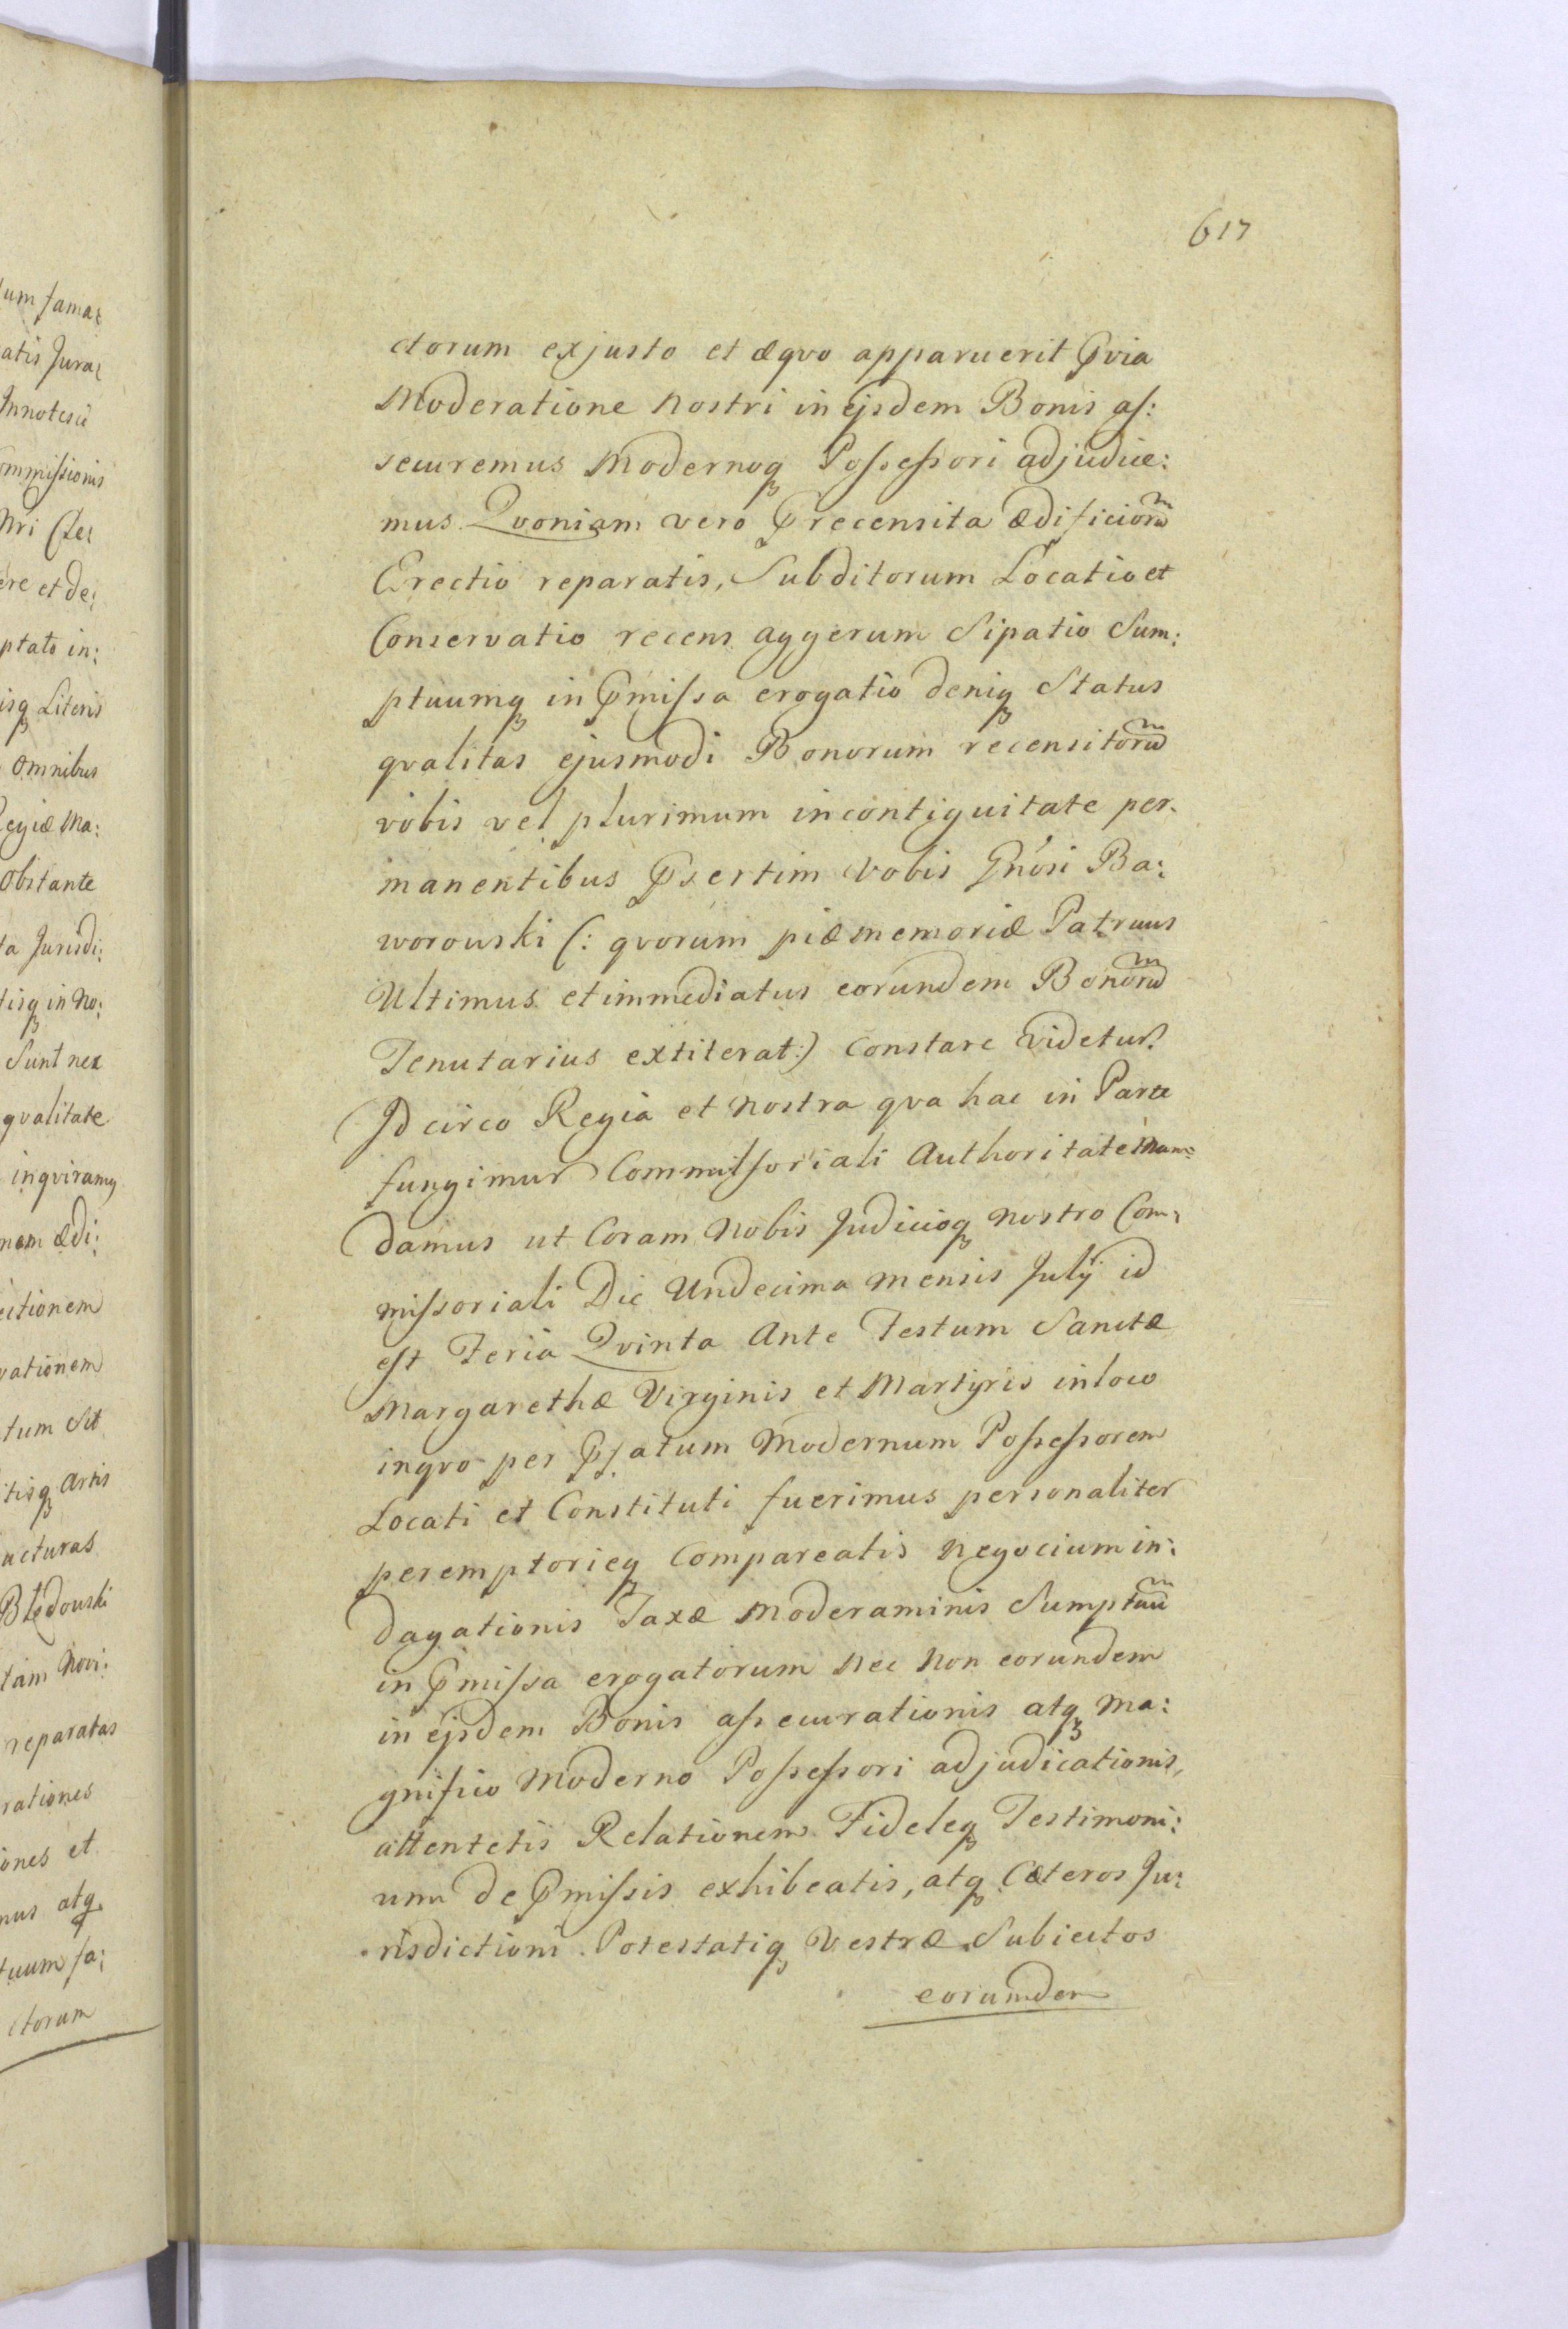 617
um fama:
atis Jura:
Innotesci
ommissionis
Nri
ere et de:
ptato in:
isq Literis
omnibus
Regiæ Ma:
Obstante
ta Jurisdi:
tisq in No:
Sunt nex
qvalitate
inqviramq
nem ædi:
ectionem
vationem
tum Sit
itisq Artis
ucturas
Błędouski
tam Novi:
reparatas
rationes
iones et
mus atq
tuum fa:
ctorum
ctorum ex justo et æqvo apparuerit Pvia
Moderatione Nostri in ejsdem Bonis as:
securemus Modernoq Possessori adjudice:
mus Qvoniam vero Precensita Ædificiorum
Erectio reparatis, Subditorum Locatio et
Conservatio recens aggerum Sipatio Sum:
ptuumq in Pmissa erogatio deniq Status
qvalitas ejusmodi Bonorum recensitorum
vobis vel plurimum in contiguitate per:
manentibus Psertim Vobis Gnosi Ba:
worouski (: qvorum piæ memoriæ Patruus
Ultimus et immediatus eorundem Bonorum
Tenutarius extiterat:) Constare Videtur.
Idcirco Regia et Nostra qva hac in Parte
fungimur Commissoriali Authoritate Man:
damus ut Coram Nobis Judicioq Nostro Com:
missoriali Die Undecima mensis Julÿ id
est Feria Qvinta Ante Festum Sanctæ
Margarethæ Virginis et Martÿris in loco
in qvo per Pfatum Modernum Possessorem
Locati et Constituti fuerimus personaliter
peremptorieq Compareatis Negocium in:
dagationis Taxæ Moderaminis Sumptuum
in Pmissa erogatorum Nec Non eorundem
in ejsdem Bonis assecurationis atq Ma:
gnifico Moderno Possessori adjudicationis,
attentetis Relationem Fideleq Testimoni:
um de Pmissis exhibeatis, atq Cæteros Ju:
risdictioni Potestatiq Vestræ Subiectos
eorumdem